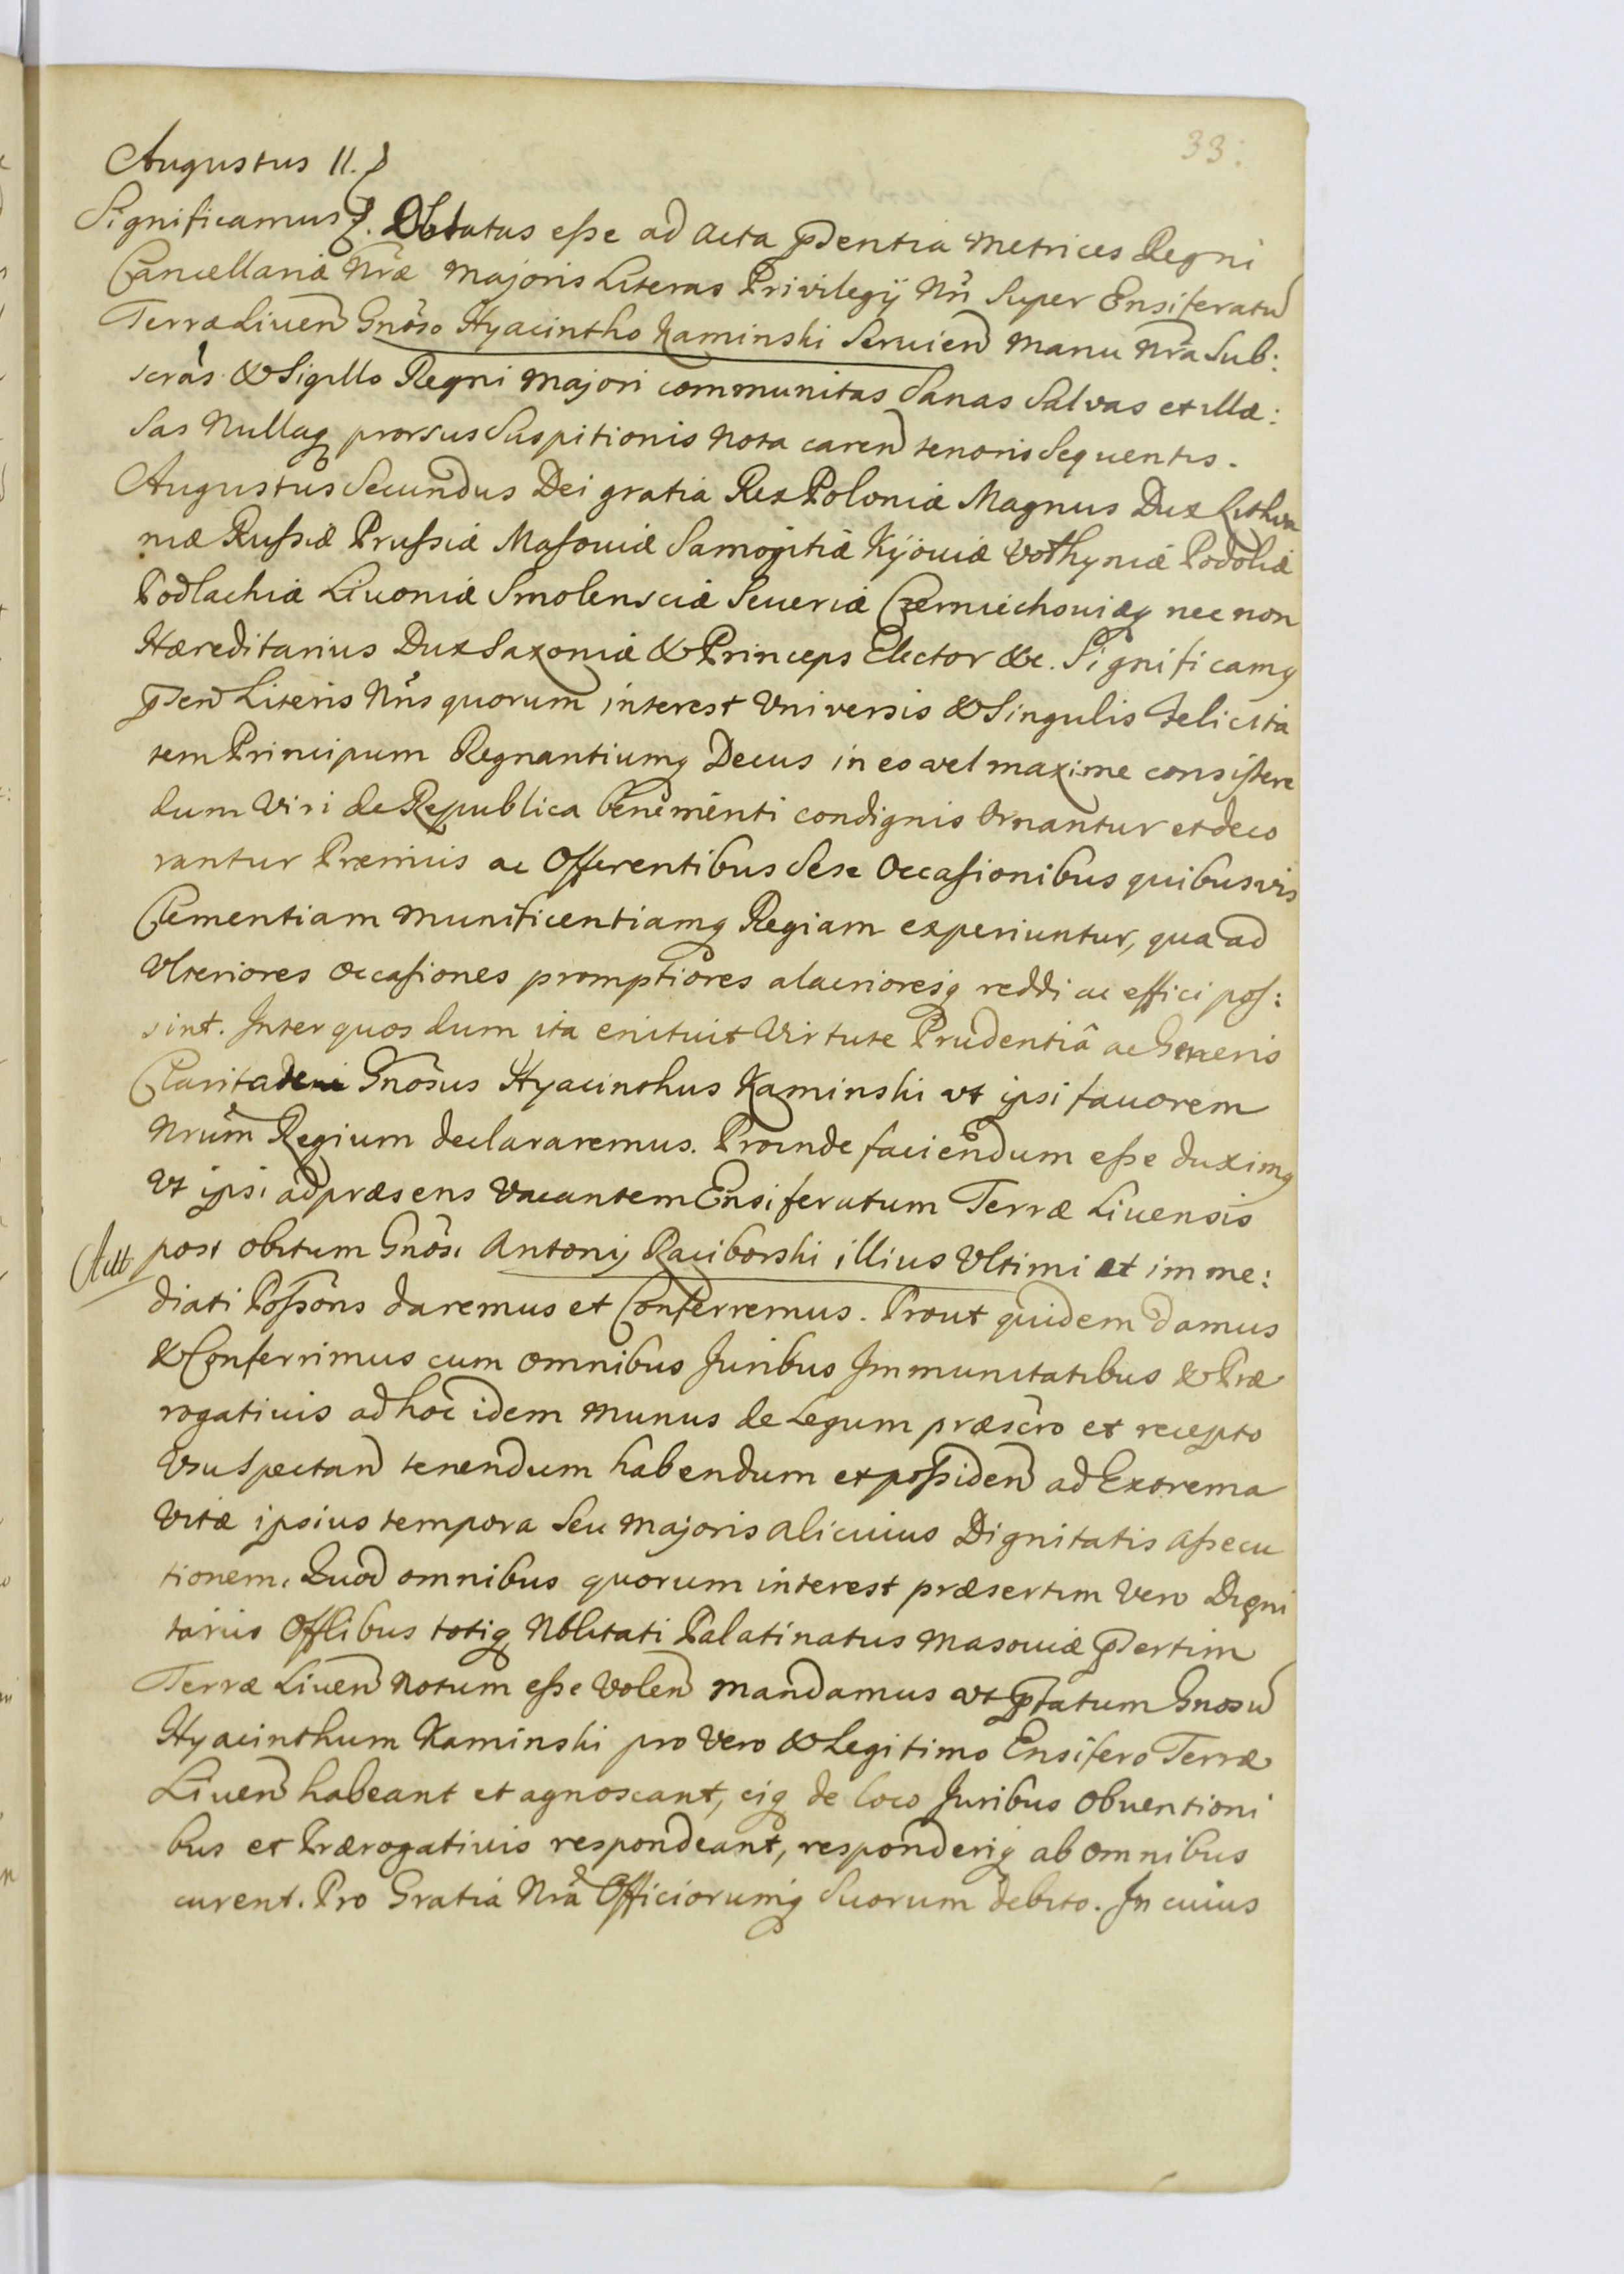 33:
Augustus II. &
Significamus &. Oblatas esse ad Acta pñdentia Metrices Regni
Cancellariæ Nræ Majoris Literas Privilegij Nri Super Ensiferatũ
Terræ Liuen̄ Gnõso Hyacintho Kaminski Seruien̄ Manu Nrã Sub:
scrãs & Sigillo Regni Majori communitas Sanas Salvas et illæ:
sas Nullaq prorsus Suspitionis Nota caren̄ tenoris Sequentis.
Augustus Secundus Dei gratia Rex Poloniæ Magnus Dux Lithua
niæ Russiæ Prussiæ Masouiæ Samogitiæ Kijouiæ Volhyniæ Podoliæ
Podlachiæ Liuoniæ Smolensciæ Seueriæ Czerniechouiæq nec non
Hæreditarius Dux Saxoniæ & Princeps Elector &c. Significamq
pñsen̄ Literis Nris quorum interest Vniversis & Singulis Felicita
tem Principum Regnantiumq Decus in eo vel maxime consistere
dum Viri de Republica benemeriti condignis Ornantur et deco
rantur Præmiis ac Offerentibus Sese Occasionibus quibusvis
Clementiam Munificentiamq Regiam experiuntur, qua ad
Vlteriores Occasiones promptiores alacrioresq reddi ac effici pos:
sint. Inter quos dum ita enituit Virtute Prudentiâ ac Generis
Claritate Gnõsus Hyacinthus Kaminski vt ipsi fauorem
Nrum Regium declararemus. Proinde faciendum esse duximq
Vt ipsi ad præsens Vacantem Ensiferatum Terræ Liuensis
post obitum Gnõsi Antonij Raciborski illius Vltimi et imme:
diati Possõns daremus et Conferremus. Prout quidem damus
& Conferrimus cum omnibus Juribus Immunitatibus & Præ
rogatiuis ad hoc idem Munus de Legum præscro et recepto
Vsu Spectan̄ tenendum habendum et possiden̄ ad Extrema
Vitæ ipsius tempora Seu Majoris alicuius Dignitatis assecu
tionem. Quod omnibus quorum interest præsertim Vero Digni
tariis Offlibus totiq Nblitati Palatinatus Masouiæ pñsertim
Terræ Liuen̄ Notum esse Volen̄ Mandamus vt pñfatum Gnosũ
Hyacinthum Kaminski pro Vero & Legitimo Ensifero Terræ
Liuen̄ habeant et agnoscant, eiq de loco Juribus Obuentioni
bus et Prærogatiuis respondeant, responderiq ab omnibus
curent. Pro Gratia Nrã Officiorumq Suorum debito. In cuius